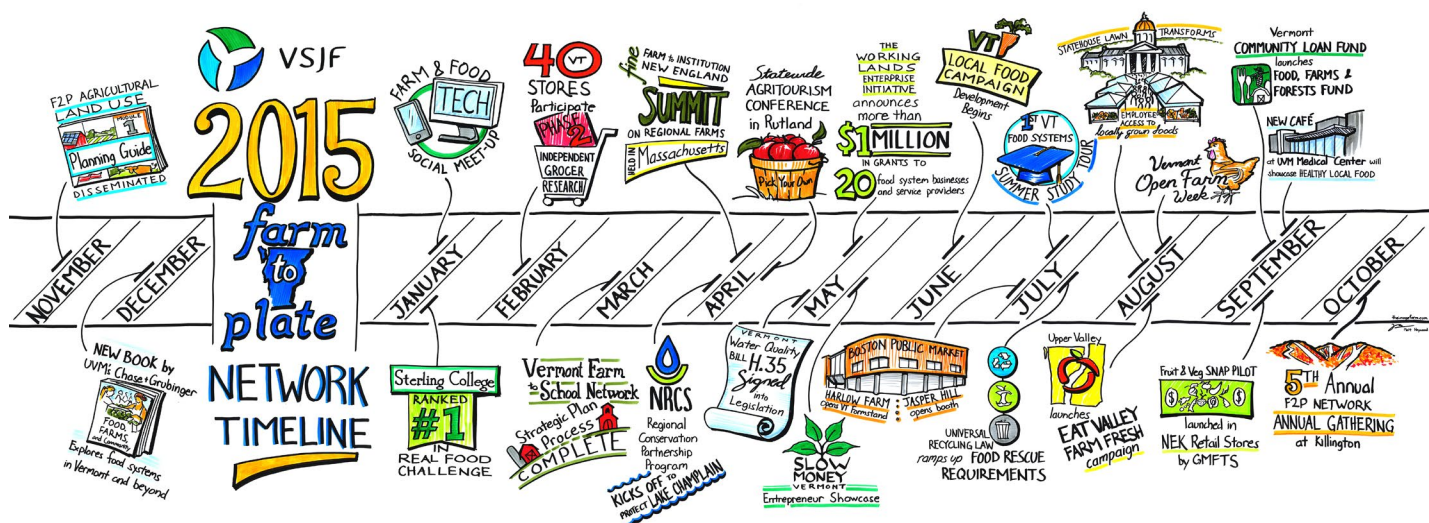 F2P AGRICULTURAL
LAND USE
MODULE
1
Planning Guide
DISSEMINATED
VSJF
2015
farm
to
plate
NETWORK
TIMELINE
FARM & FOOD
TECH
SOCIAL MEET-UP
40
VT
STORES
Participate
PHASE 2
INDEPENDENT
GROCER
RESEARCH
fine
FARM to INSTITUTION
NEW ENGLAND
SUMMIT
ON REGIONAL FARMS
HELD IN
Massachusetts
Statewide
AGRITOURISM
CONFERENCE
in Rutland
Pick Your Own
THE
WORKING
LANDS
ENTERPRISE
INITIATIVE
announces
more than
$1 MILLION
IN GRANTS TO
20 food system businesses
and service providers
VT
LOCAL FOOD
CAMPAIGN
Development
Begins
1ST VT
FOOD SYSTEMS
SUMMER STUDY
TOUR
STATEHOUSE LAWN TRANSFORMS
EMPLOYEE
ACCESS TO
locally grown foods
Vermont
Open Farm
Week
Vermont
COMMUNITY LOAN FUND
launches
FOOD, FARMS &
FORESTS FUND
NEW CAFÉ
at UVM Medical Center will
showcase HEALTHY LOCAL FOOD
NOVEMBER
DECEMBER
JANUARY
FEBRUARY
MARCH
APRIL
MAY
JUNE
JULY
AUGUST
SEPTEMBER
OCTOBER
NEW BOOK by
UVM's Chase + Grubinger
FOOD,
FARMS,
and Community
Explores food systems
in Vermont and beyond
Sterling College
RANKED
#1
IN
REAL FOOD
CHALLENGE
Vermont Farm
to School Network
Strategic Plan
Process
COMPLETE
NRCS
Regional
Conservation
Partnership
Program
KICKS OFF TO
PROTECT LAKE CHAMPLAIN
VERMONT
Water Quality
BILL H.35
Signed
into
Legislation
SLOW
MONEY
VERMONT
Entrepreneur Showcase
BOSTON PUBLIC MARKET
HARLOW FARM
opens VT farmstand
JASPER HILL
opens booth
UNIVERSAL
RECYCLING LAW
ramps up FOOD RESCUE
REQUIREMENTS
Upper Valley
launches
EAT VALLEY
FARM FRESH
campaign
Fruit & Veg SNAP PILOT
$ $
launched in
NEK Retail Stores
by GMFTS
5TH Annual
F2P NETWORK
ANNUAL GATHERING
at Killington